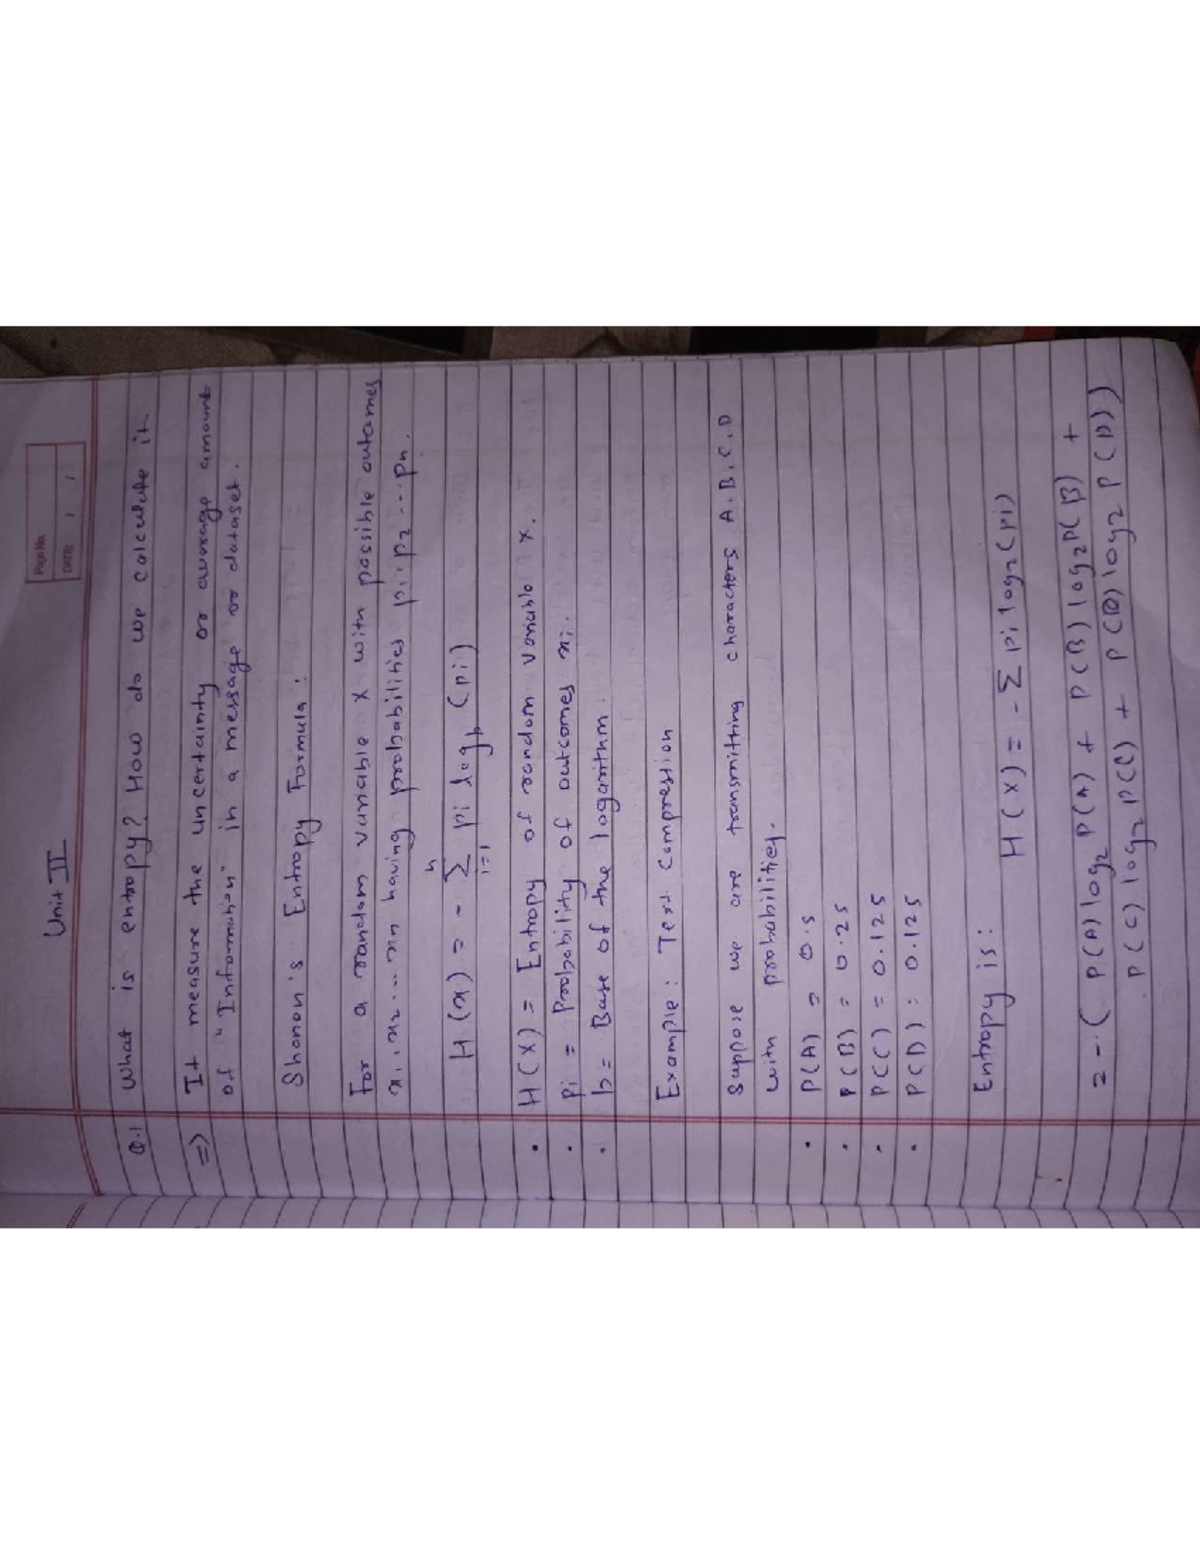 Page No.
DATE / /
Unit II
Q.1 What is entropy? How do we calculate it.
=> It measure the uncertainty or average amount
of "Information" in a message or dataset.
Shanon's Entropy Formula :
For a random variable X with possible outcomes
x1, x2 ... xn having probabilities p1, p2 ... pn.
H(x) = - n∑i=1 pi logb (pi)
• H(X) = Entropy of random variable X.
• pi = Probability of outcomes xi.
• b = Base of the logarithm.
Example : Text Compression
Suppose we are transmitting characters A, B, C, D
with probabilities.
• P(A) = 0.5
• P(B) = 0.25
• P(C) = 0.125
• P(D) : 0.125
Entropy is :
H(X) = - ∑ pi log2 (pi)
= - ( P(A) log2 P(A) + P(B) log2 P(B) +
P(C) log2 P(C) + P(D) log2 P(D))